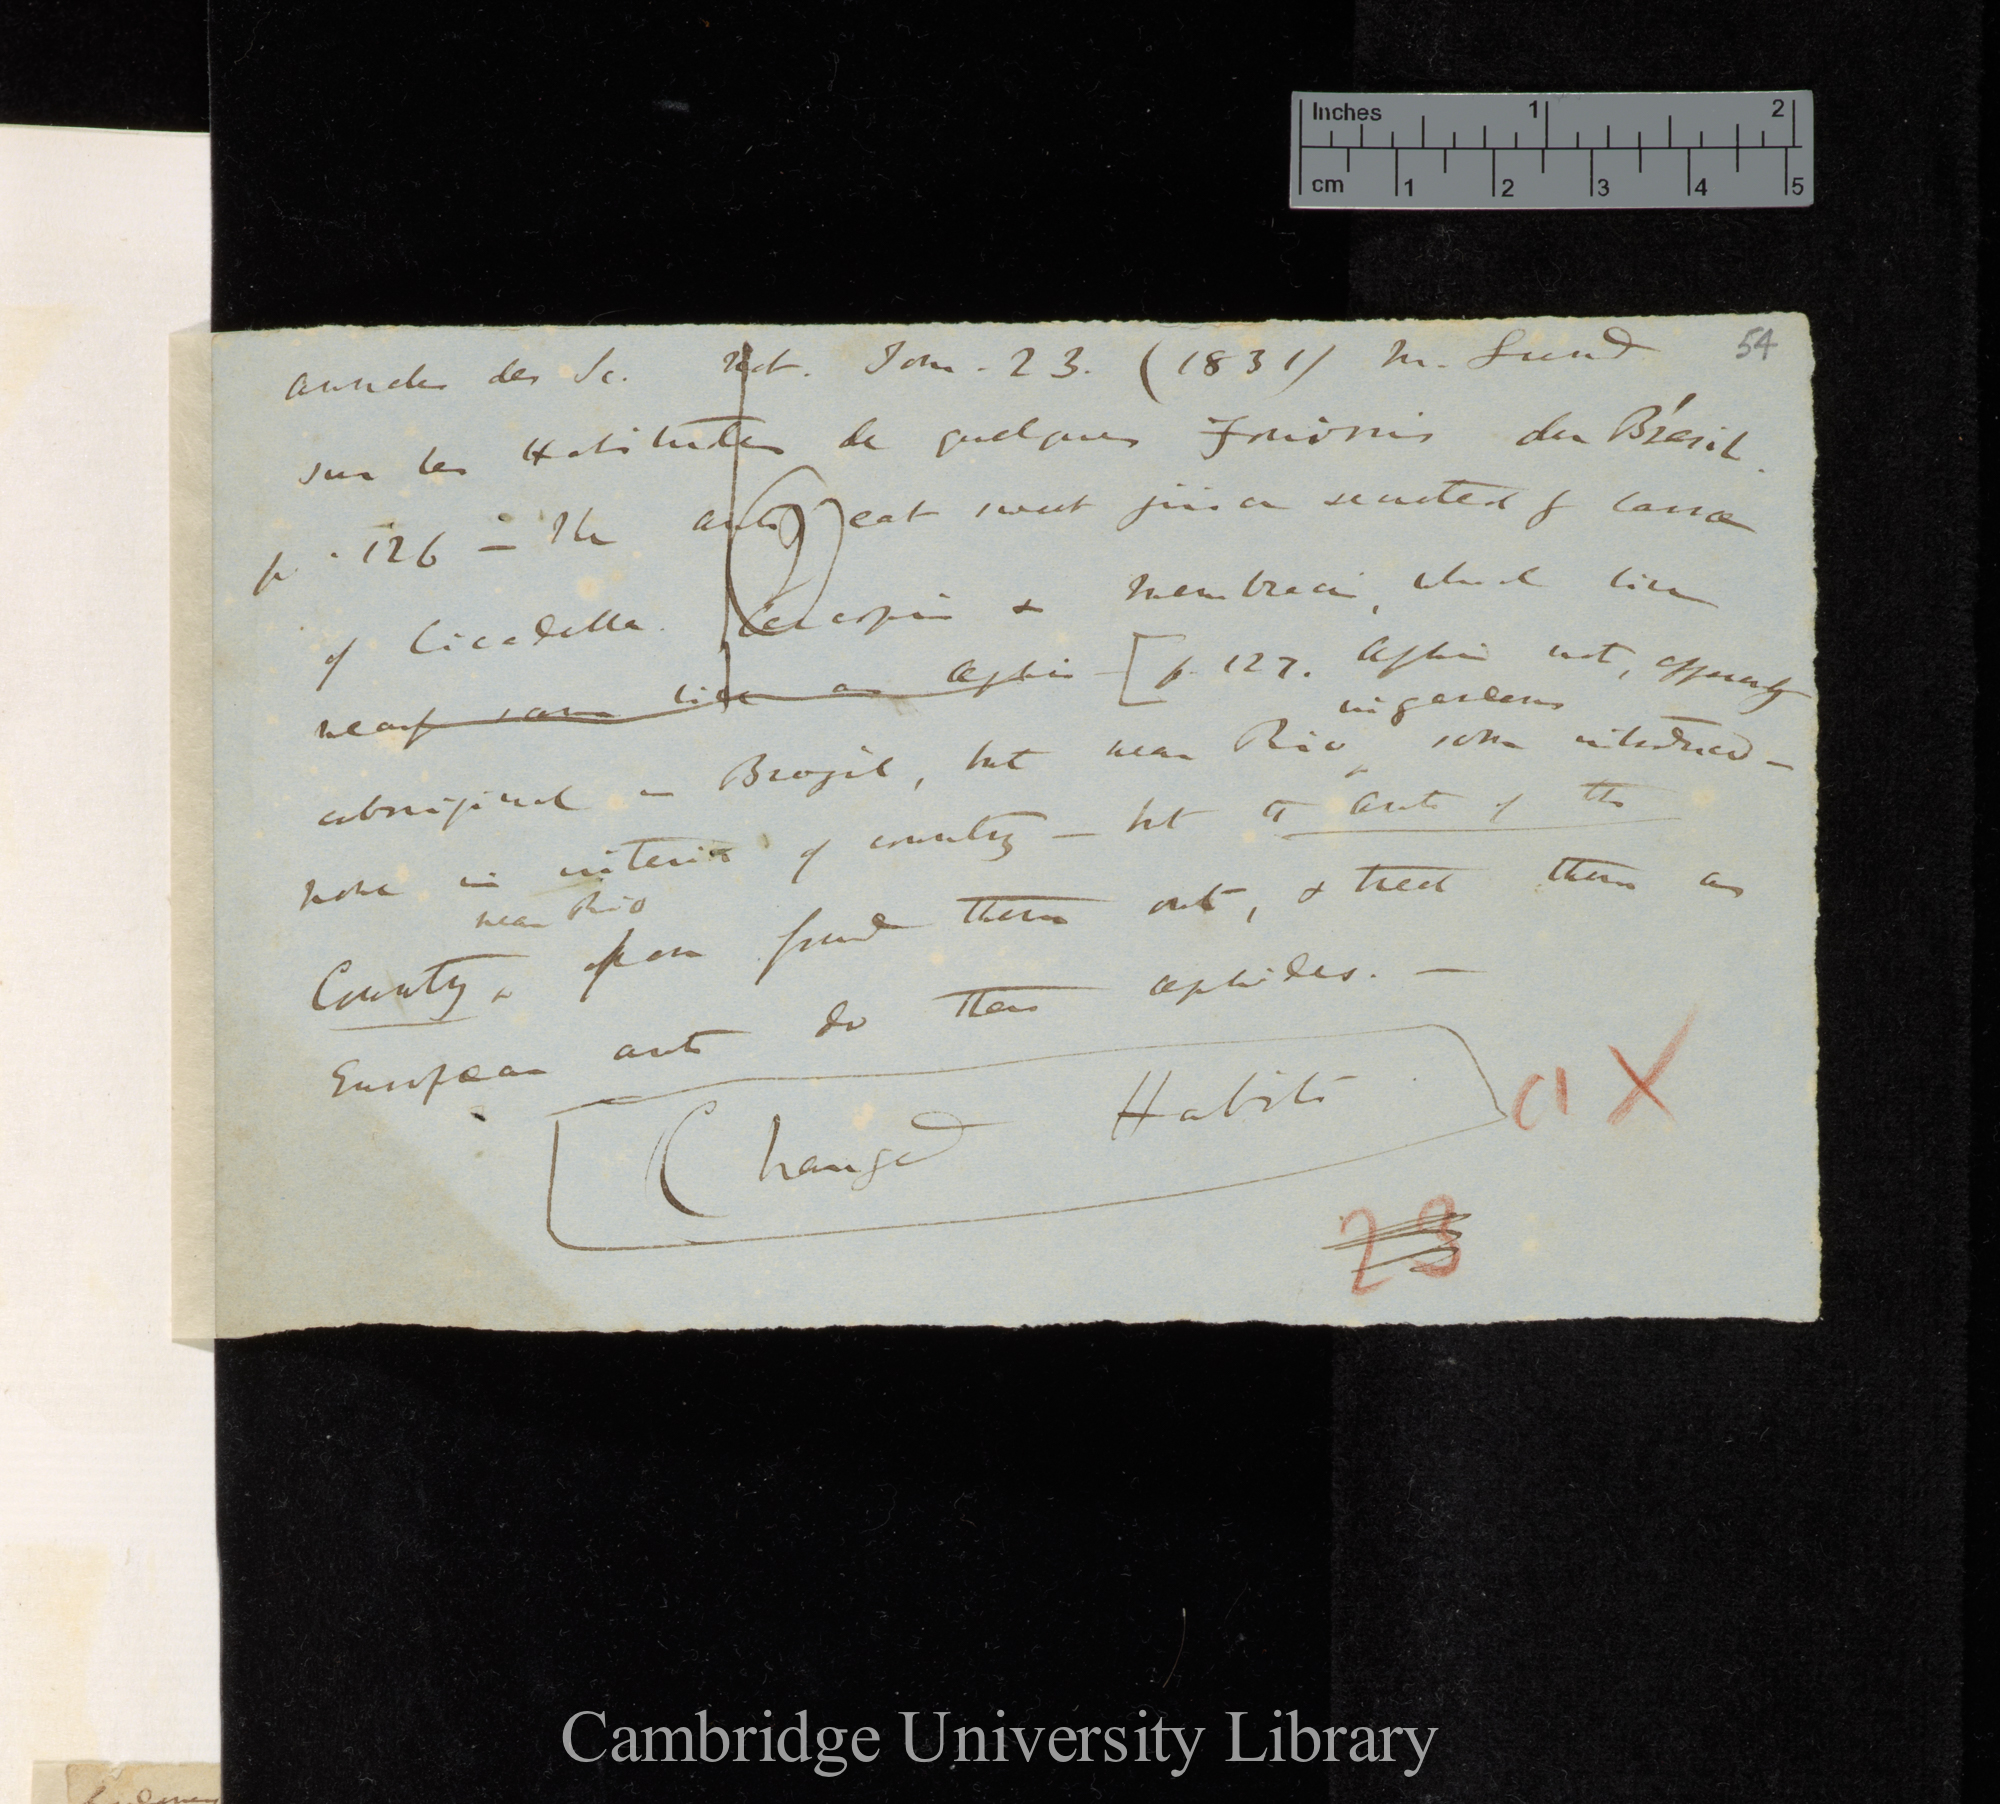 Inches 1 2
cm 1 2 3 4 5
54
Annales des Sc. Nat. Tom. 23. (1831) M. Lund
sur les Habitudes de quelques Fourmis du Brésil.
p. 126 — The ants eat sweet juice secreted by larvæ
of Cicadella. Cercopis & Membracis, which live
nearly same life as Aphis — [p. 127. Aphis not, apparently
in gardens
aboriginal in Brazil, but near Rio, some introduced —
none in interior of country — but the ants of the
near Rio
Country, have found them out, & treat them as
European ants do their aphides. —
Changed Habits
a X
23
Cambridge University Library